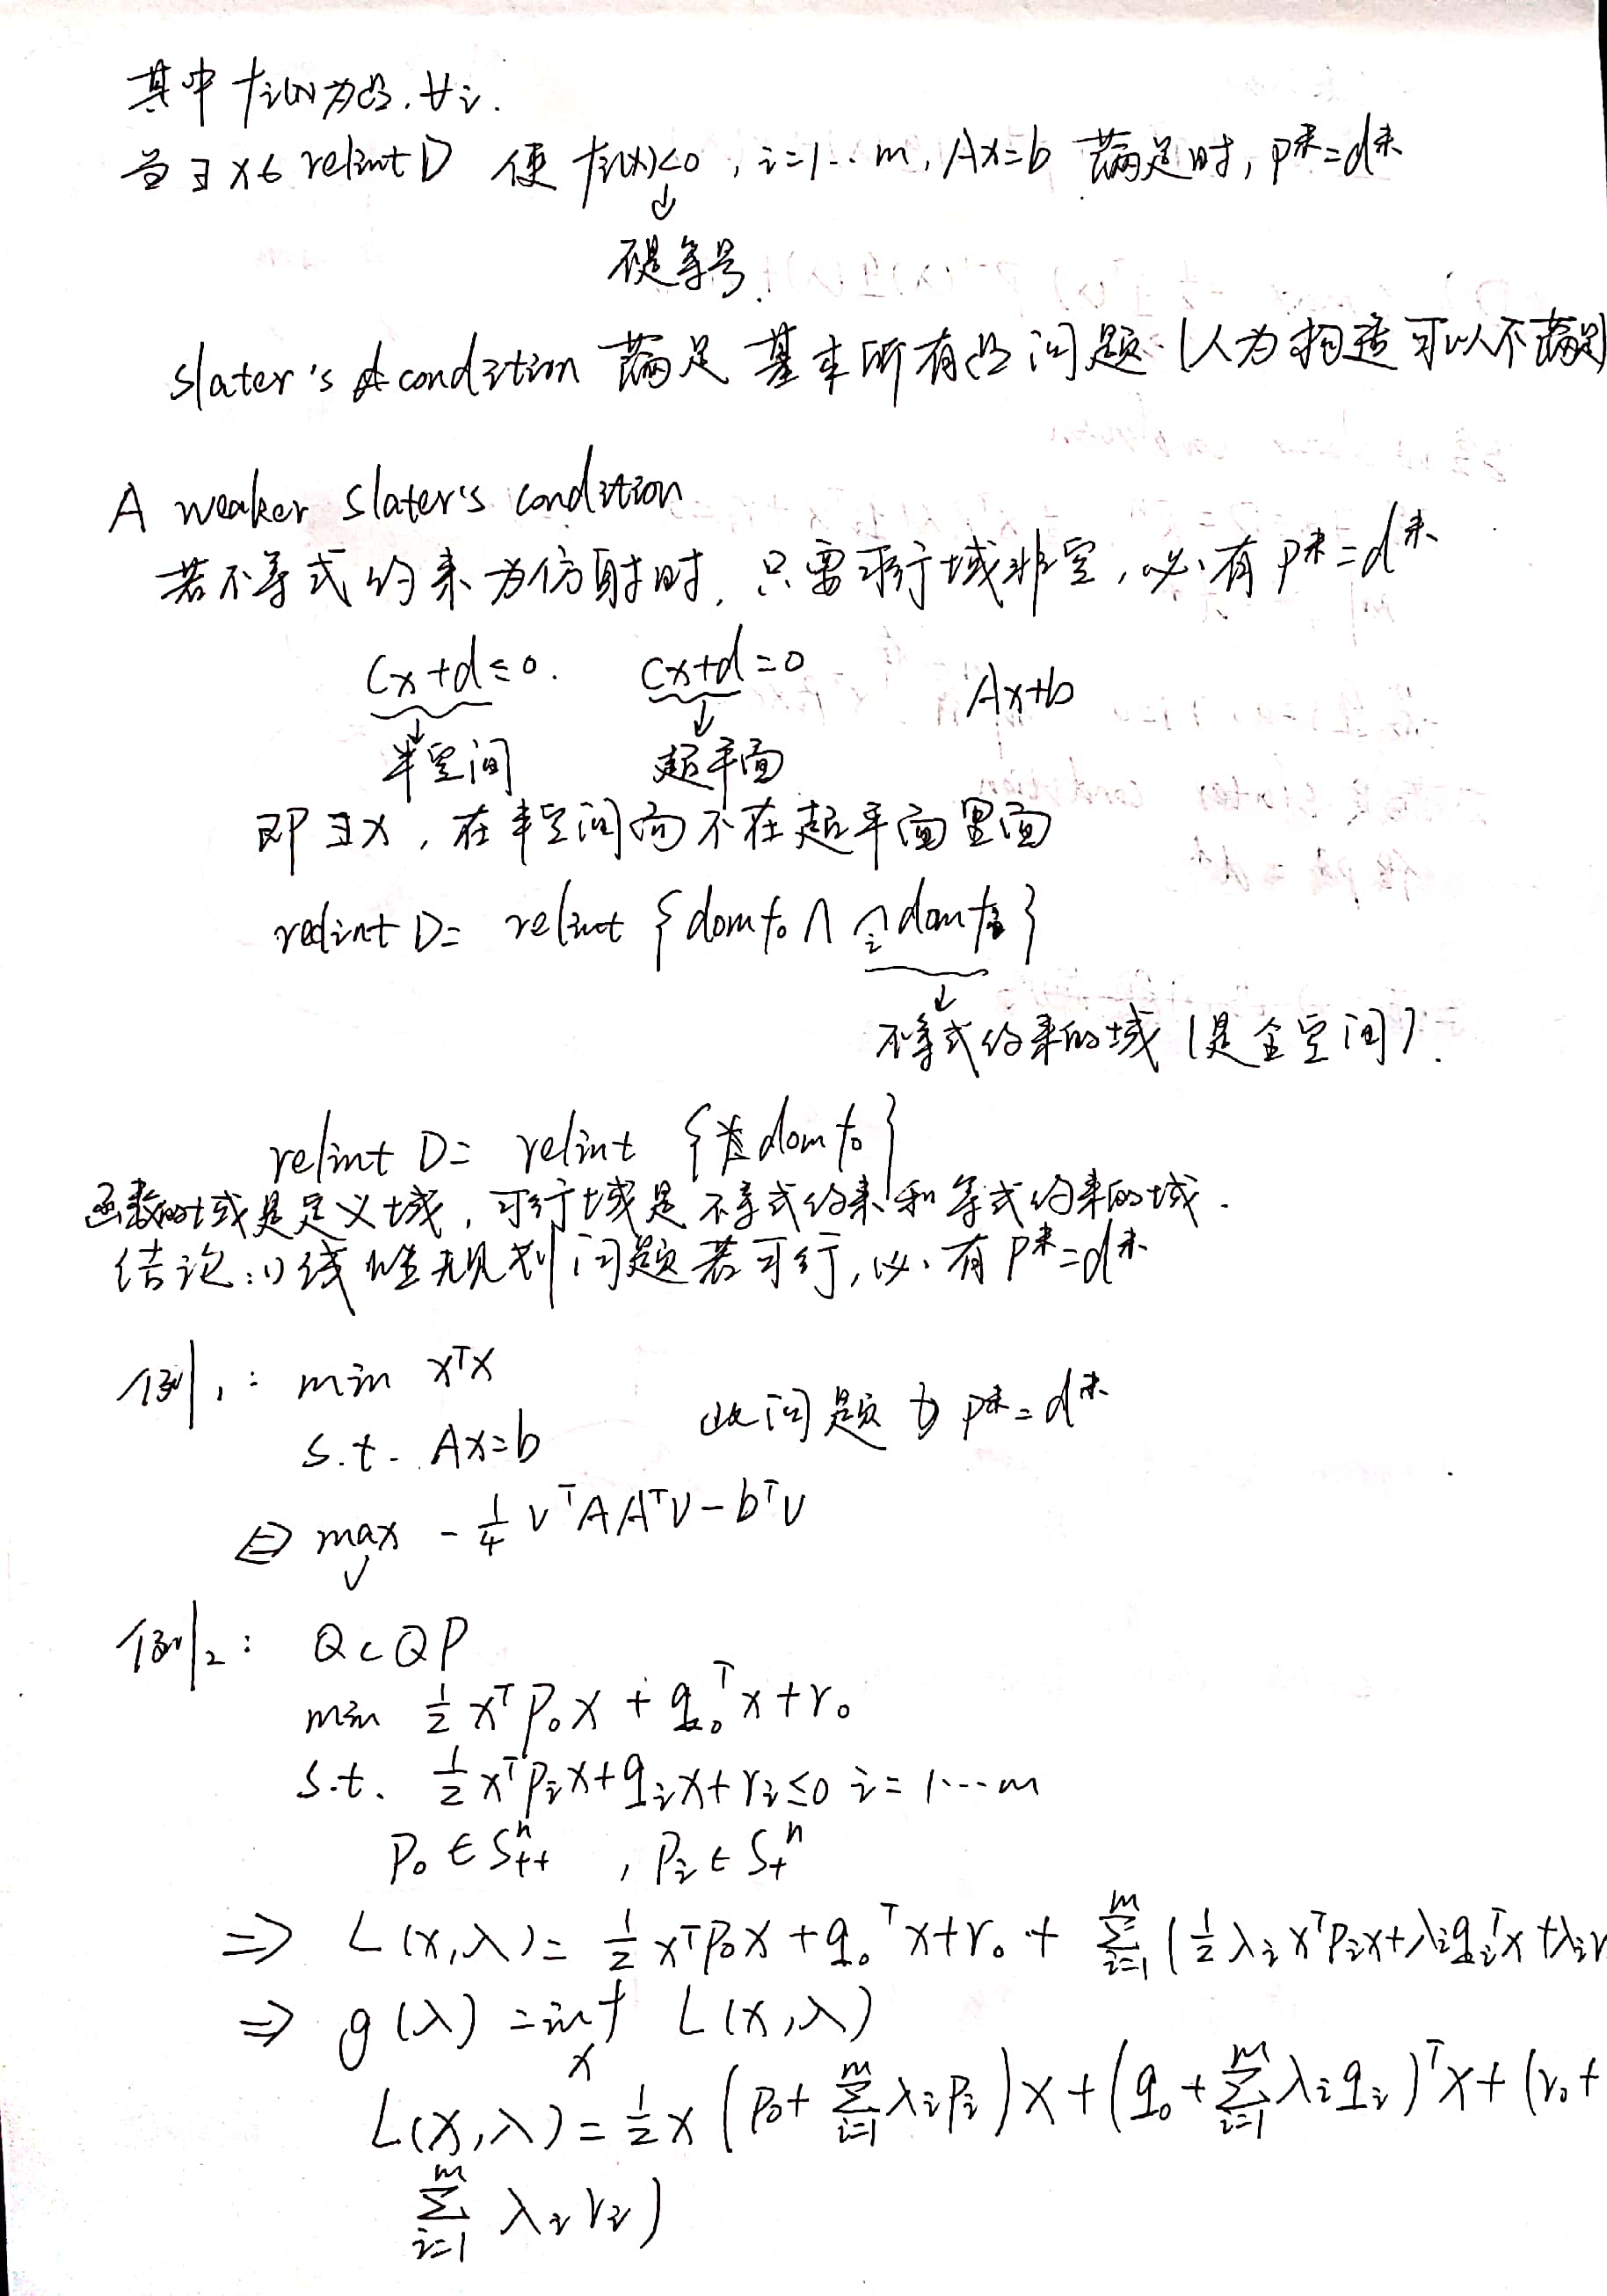 其中 fi(x)为凸, ∀i.
当∃x∈relint D 使 fi(x)<0, i=1...m, Ax=b 满足时, p*=d*
↓
不是等号.
slater's condition 满足基本所有凸问题.(人为构造可以不满足)
A weaker slater's condition
若不等式约束为仿射时, 只需可行域非空, 必有 p*=d*
Cx+d≤0. Cx+d=0 Ax+b
↓ ↓
半空间 超平面
即∃x, 在半空间而不在超平面里面
relint D = relint {dom f₀ ∩ ∩i dom fi}
↓
不等式约束的域(是全空间).
relint D = relint {dom f₀}
函数的域是定义域, 可行域是不等式约束和等式约束的域.
结论: 1) 线性规划问题若可行, 必有 p*=d*
例1: min xᵀx
s.t. Ax=b 此问题为 p*=d*
⇔ max - 1/4 vᵀAAᵀv - bᵀv
v
例2: QCQP
min 1/2 xᵀP₀x + q₀ᵀx + r₀
s.t. 1/2 xᵀPix + qix + ri ≤ 0 i=1...m
P₀∈Sⁿ₊₊, Pi∈Sⁿ₊
⇒ L(x,λ) = 1/2 xᵀP₀x + q₀ᵀx + r₀ + Σᵢ₌₁ᵐ (1/2 λi xᵀPix + λi qiᵀx + λir
⇒ g(λ) = inf L(x,λ)
x
L(x,λ) = 1/2 x (P₀ + Σᵢ₌₁ᵐ λiPi) x + (q₀ + Σᵢ₌₁ᵐ λiqi)ᵀx + (r₀ +
Σᵢ₌₁ᵐ λiri)